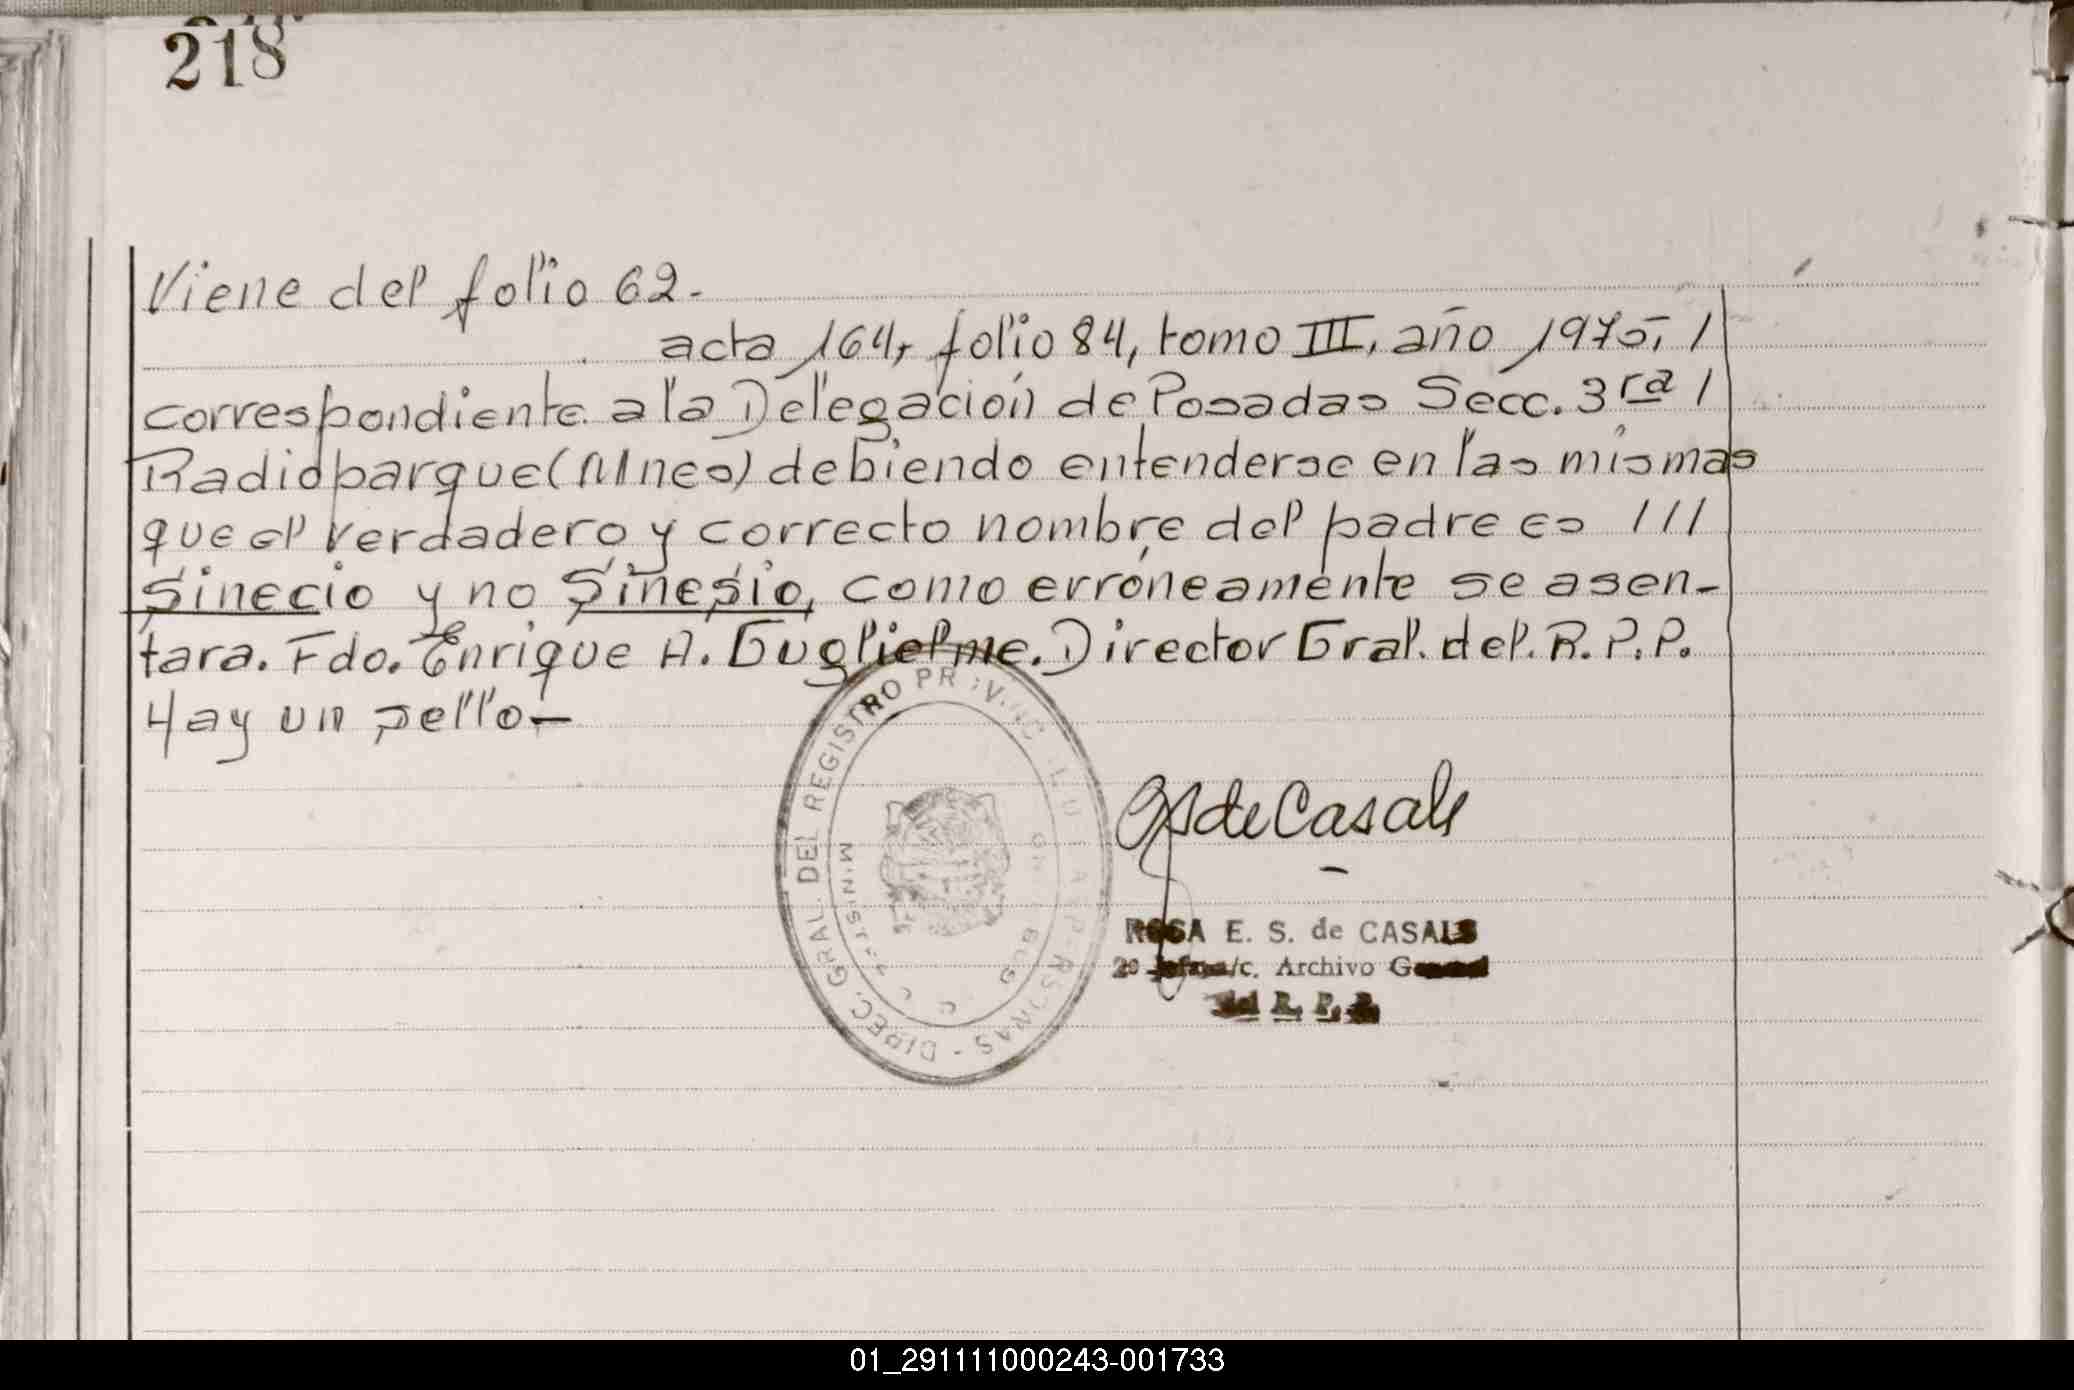 218
Viene del folio 62.-
acta 164, folio 84, tomo III, año 1975, /
correspondiente a la Delegación de Posadas Secc. 3ra /
Radioparque (Mnes) debiendo entenderse en las mismas
que el verdadero y correcto nombre del padre es ///
Sinecio y no Sinesio, como erróneamente se asen-
tara. Fdo. Enrique A. Guglielme. Director Gral. del. R. P. P.
Hay un sello-
DIREC. GRAL. DEL REGISTRO
ROSA E. S. de CASALS
2º Archivo
del R. P. P.
01_291111000243-001733